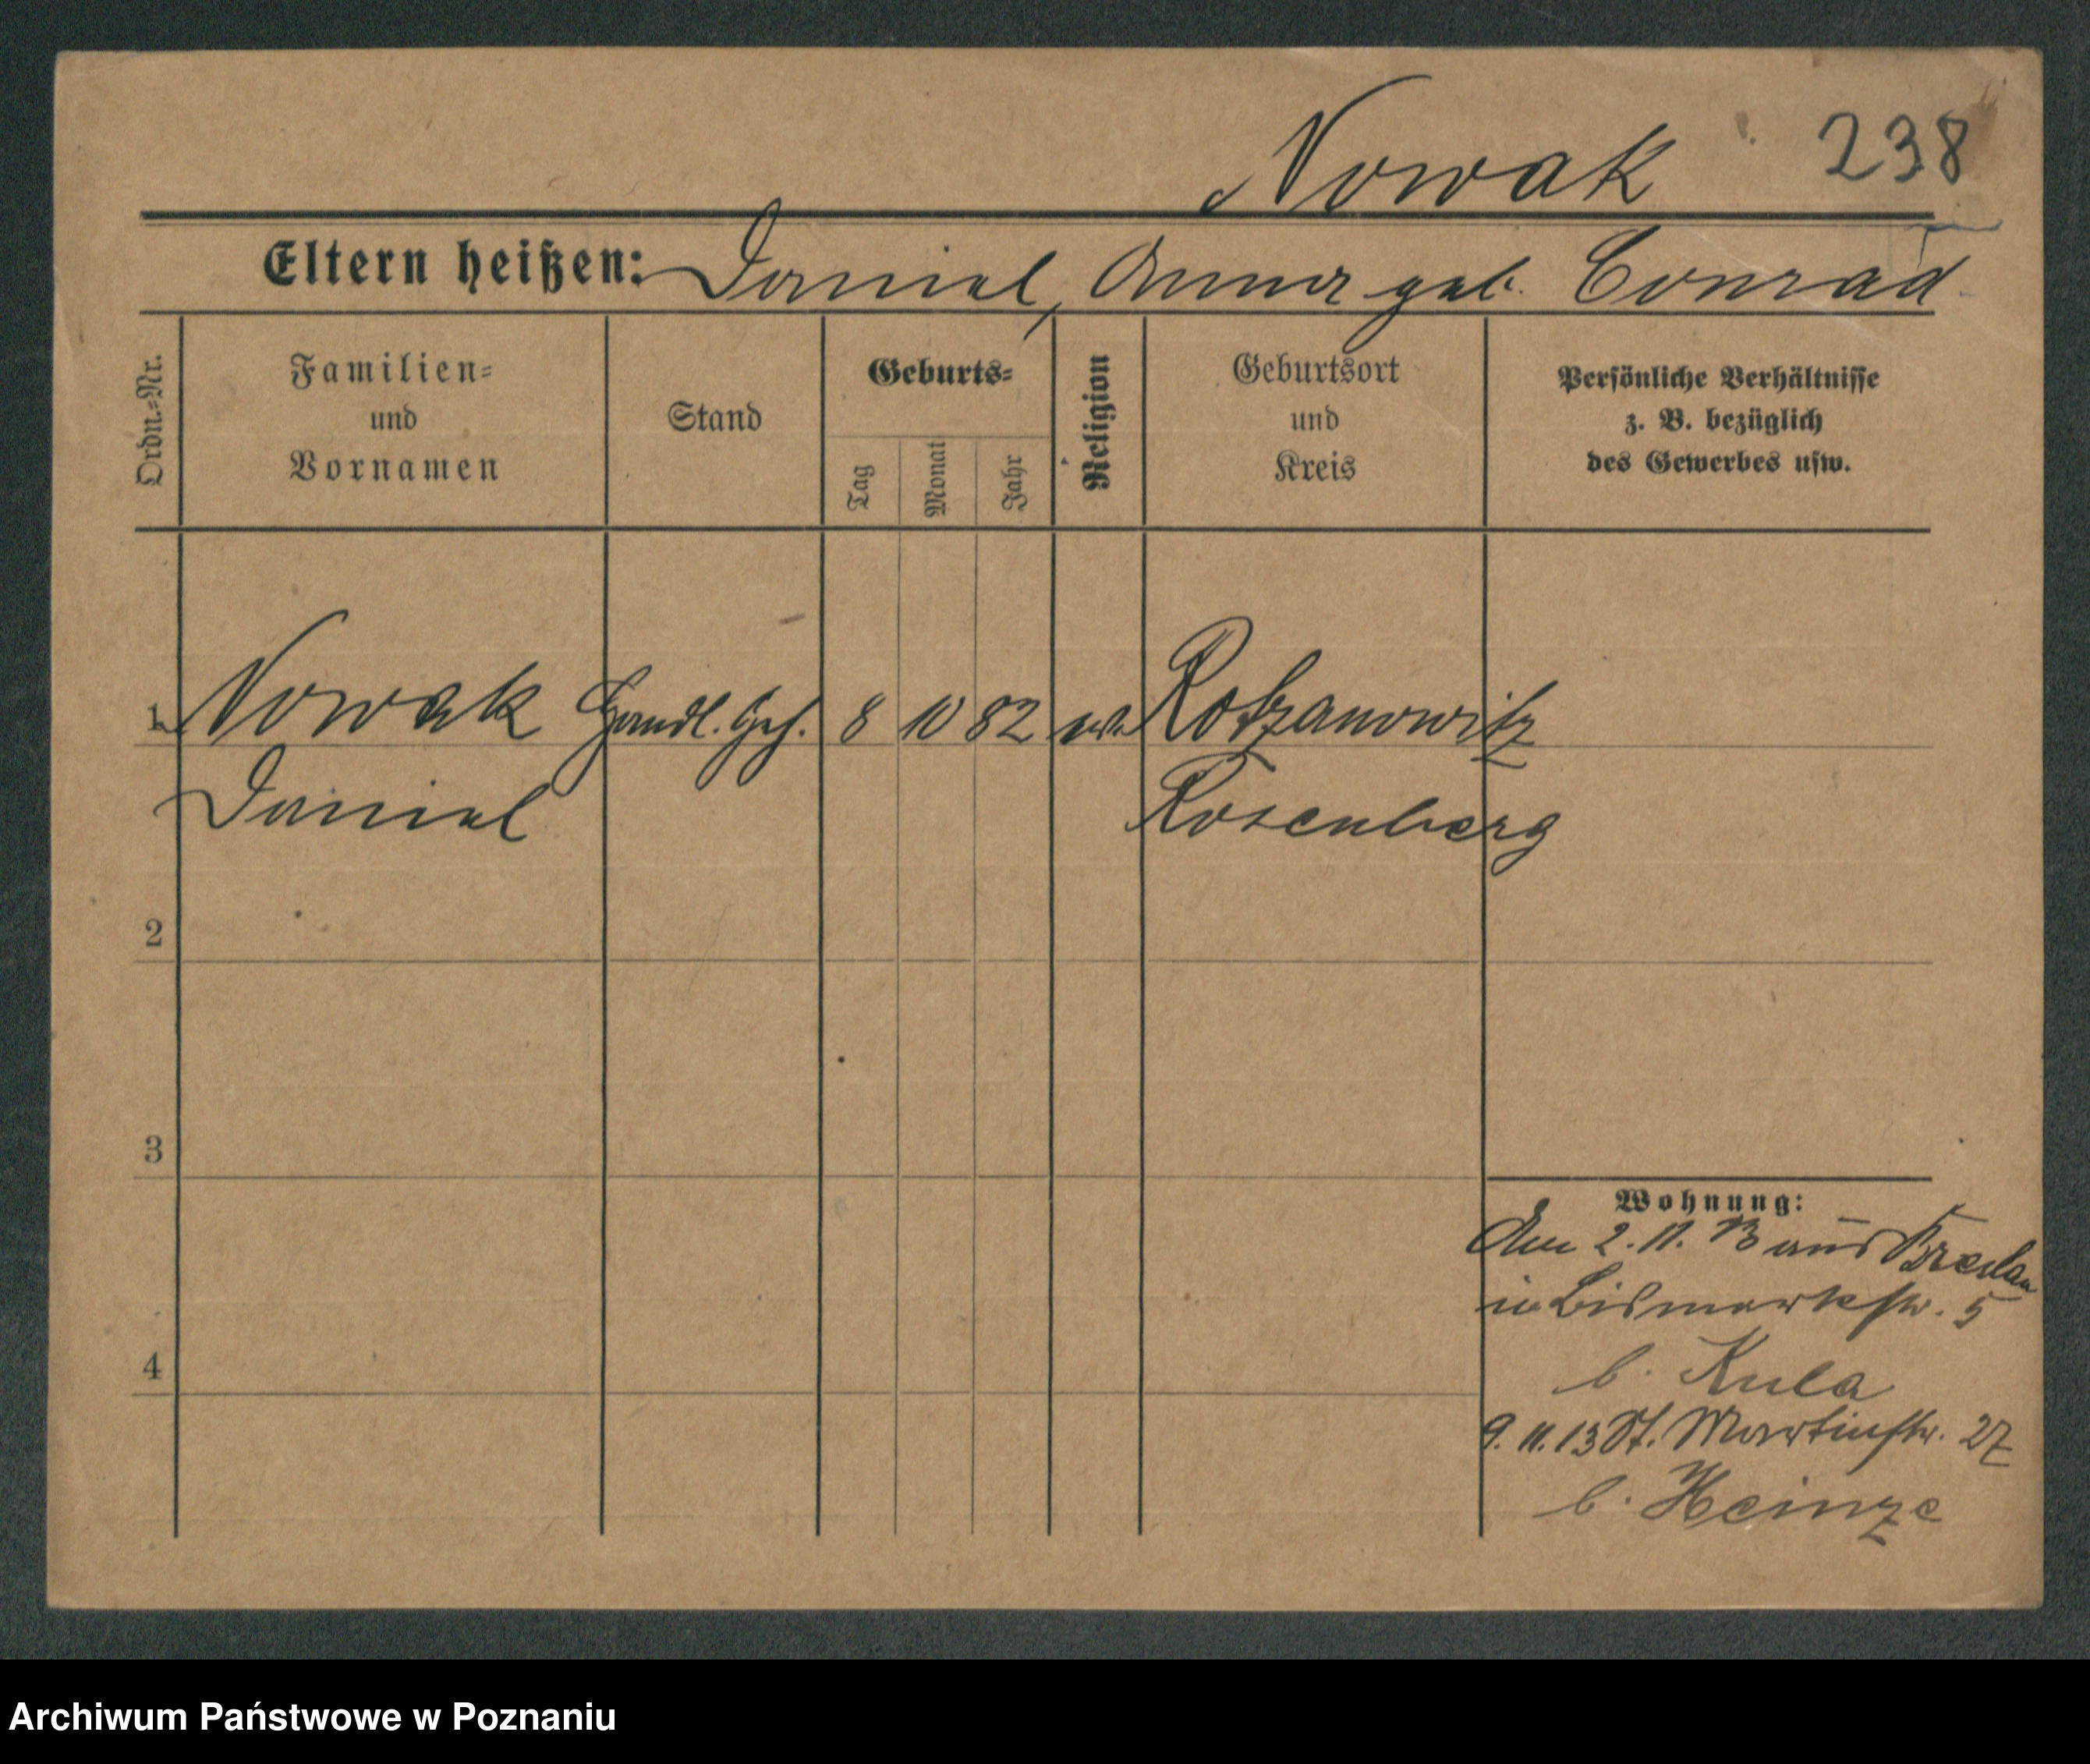 Nowak 238
Eltern heißen: Daniel, Anna geb. Conrad
Ordn.-Nr.
Familien-
und
Vornamen
Stand
Geburts-
Tag
Monat
Jahr
Religion
Geburtsort
und
Kreis
Persönliche Verhältnisse
z. B. bezüglich
des Gewerbes usw.
1 Nowak Handl. Geh. 8 10 82 ev. Kotzanowitz
Daniel Rosenberg
2
3
4
Wohnung:
Am 2.11.13 aus Breslau
in Bismarkstr. 5
b. Kula
9.11.13 St. Martinstr. 27
b. Heinze
Archiwum Państwowe w Poznaniu